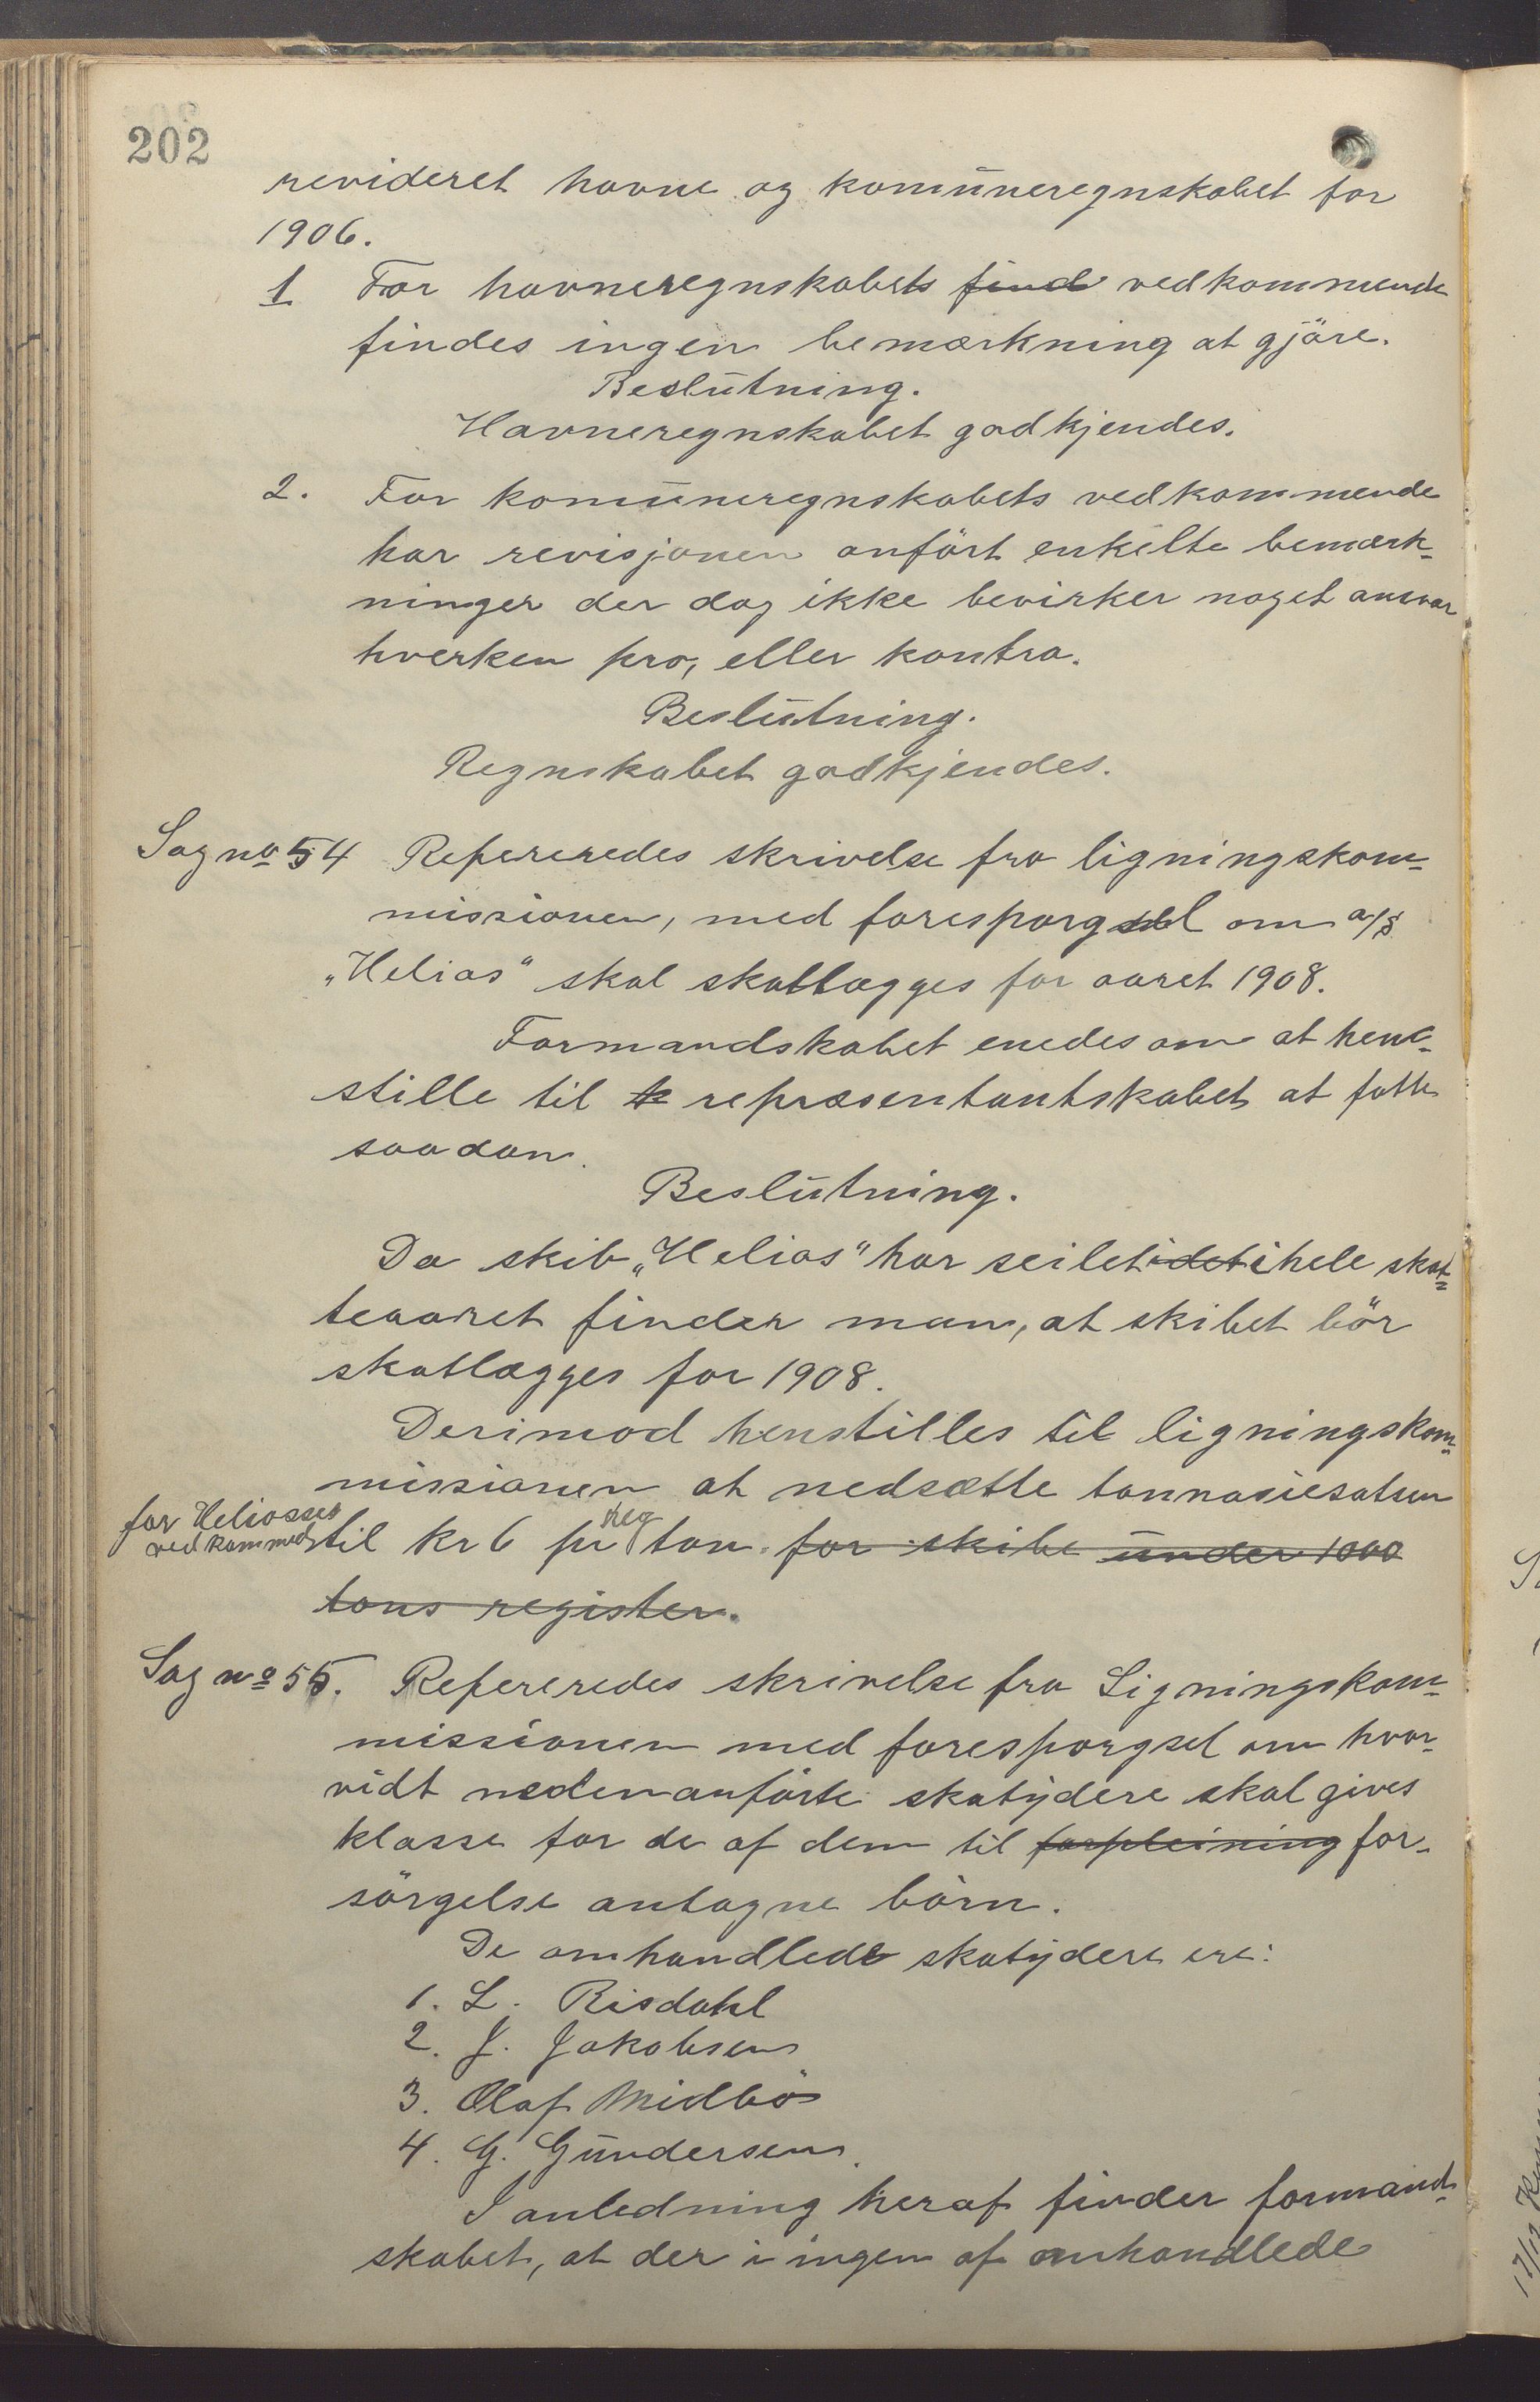 202
revideret havne og komüneregnskabet for
1906.
1 For havneregnskabets find vedkommende
findes ingen bemærkning at gjöre.
Beslütning.
Havneregnskabet godkjendes.
2. For komüneregnskabets vedkommende
har revisjonen anfört enkelte bemærk-
ninger der dog ikke bevirker noget ansvar
hverken pro, eller kontra.
Beslütning.
Regnskabet godkjendes.
Sag no 54 Refereredes skrivelse fra ligningskom-
missionen, med foresporgsel om a/s
„Helios" skal skatlægges for aaret 1908.
Formandskabet enedes om at hen-
stille til repræsentantskabet at fatte
saadan.
Beslütning.
Da skib „Helios" har seilet i det i hele skat-
teaaret finder man, at skibet bör
skatlægges for 1908.
Derimod henstilles til ligningskom-
missionen at nedsætte tonnasiesatsen
for Heliosses
vedkommed til kr 6 pr reg ton. for skibe ünder 1000
tons register.
Sag no 55. Refereredes skrivelse fra Ligningskom-
missionen med foresporgsel om hvor-
vidt nedenanförte skatydere skal gives
klasse for de af dem til forpleining for-
sörgelse antagne börn.
De omhandlede skatydere ere:
1. L. Risdahl
2. J. Jakobsen
3. Olaf Midbö
4. G. Gündersen.
I anledning heraf finder formand-
skabet, at der i ingen af omhandlede
17/12